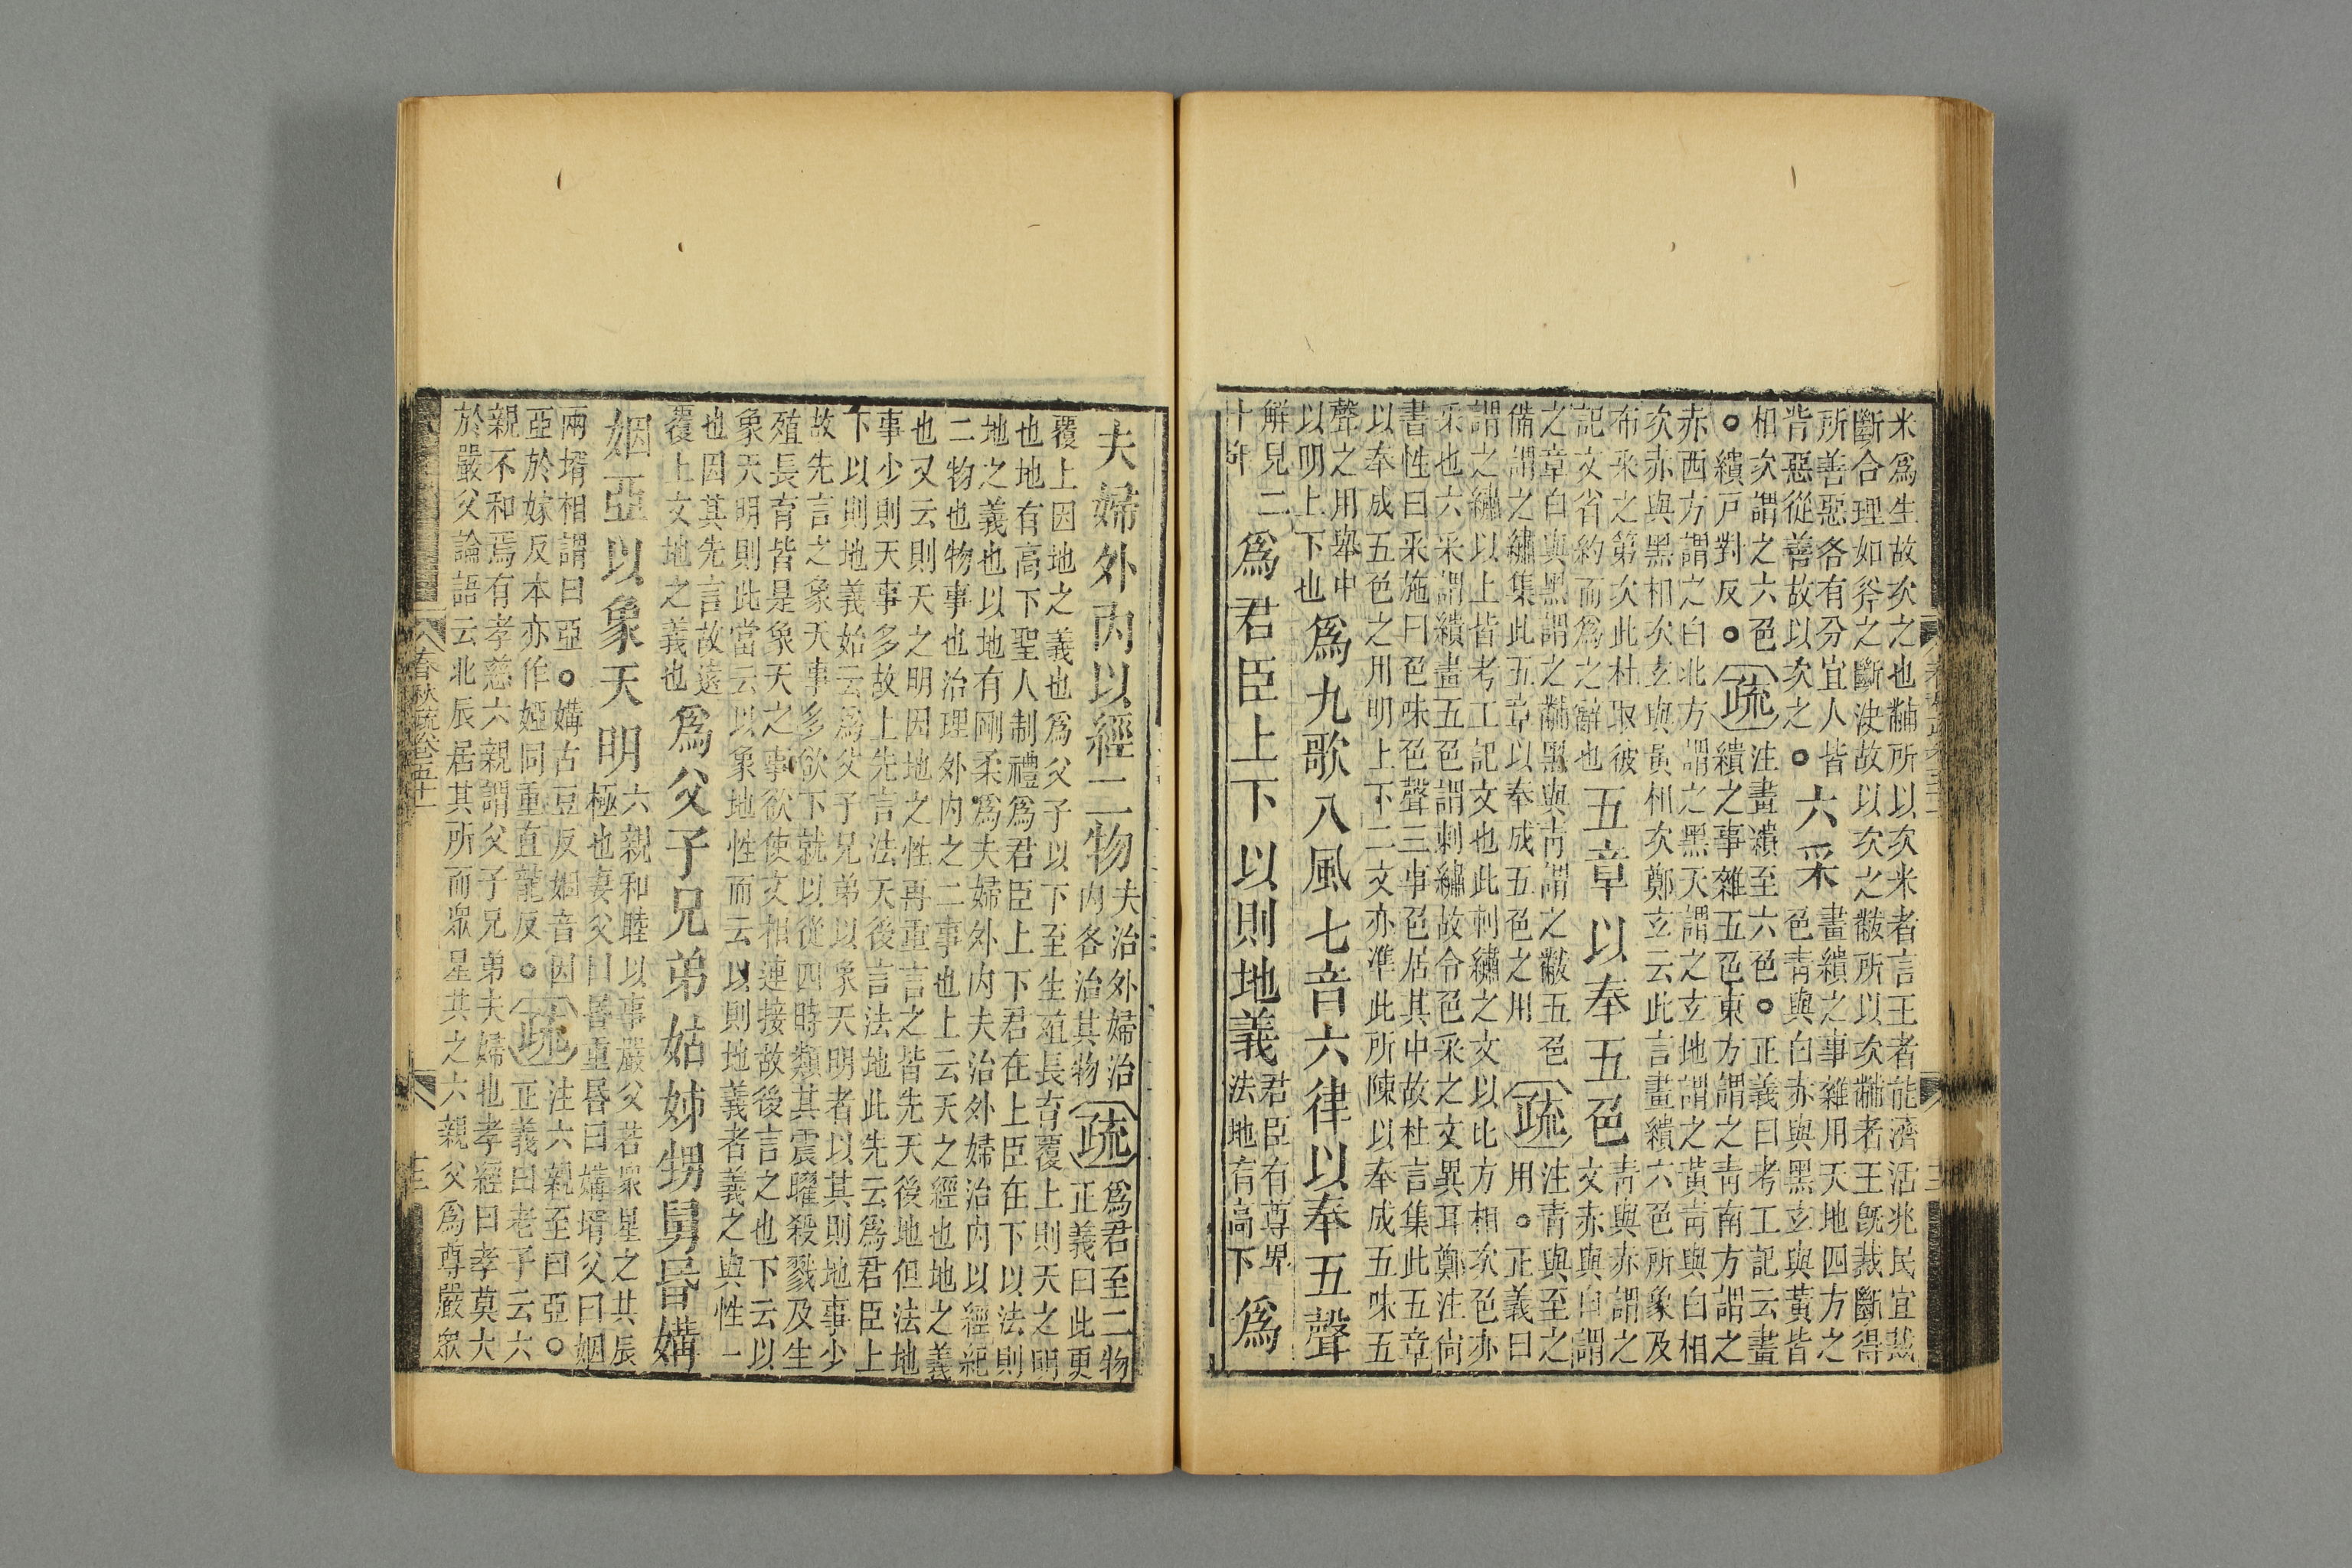 米爲生故次之也黼所以次米者言王者能濟活兆民宜裁
斷合理如斧之斷決故以次之黻所以次黼者王旣裁斷得
所善惡各有分宜人皆
背惡從善故以次之○六采畫繢之事雜用天地四方之
色青與白赤與黑玄與黃皆
相次謂之六色
○繢戸對反○疏注畫繢至六色○正義曰考工記云畫
繢之事雜五色東方謂之青南方謂之
赤西方謂之白北方謂之黑天謂之玄地謂之黃青與白相
次赤與黑相次玄與黃相次鄭玄云此言畫繢六色所象及
布采之第次此杜取彼
記文省約而爲之辭也五章以奉五色青與赤謂之
文赤與白謂
之章白與黑謂之黼黑與青謂之黻五色
備謂之繡集此五章以奉成五色之用疏注青與至之
用○正義曰
謂之繡以上皆考工記文也此刺繡之文以比方相次色亦
采也六采謂繢畫五色謂刺繡故令色采之文異耳鄭注尚
書性曰采施曰色味色聲三事色居其中故杜言集此五章
以奉成五色之用明上下二文亦準此所陳以奉成五味五
聲之用舉中
以明上下也爲九歌八風七音六律以奉五聲
解見二
十年爲君臣上下以則地義君臣有尊卑
法地有高下爲
夫婦外內以經二物夫治外婦治
內各治其物疏爲君至二物
正義曰此更
覆上因地之義也爲父子以下至生殖長育覆上則天之明
也地有高下聖人制禮爲君臣上下君在上臣在下以法則
地之義也以地有剛柔爲夫婦外內夫治外婦治內以經紀
二物也物事也治理外內之二事也上云天之經也地之義
也又云則天之明因地之性再重言之皆先天後地但法地
事少則天事多故上先言法天後言法地此先云爲君臣上
下以則地義始云爲父子兄弟以象天明者以其則地事少
故先言之象天事多欲下就以從四時類其震曜殺戮及生
殖長育皆是象天之事欲使文相連接故後言之也下云以
象天明則此當云以象地性而云以則地義者義之與性一
也因其先言故遠
覆上文地之義也爲父子兄弟姑姊甥舅昏媾
姻亞以象天明六親和睦以事嚴父若衆星之共辰
極也妻父曰昏重昏曰媾壻父曰姻
兩壻相謂曰亞○媾古豆反姻音因
亞於嫁反本亦作婭同重直龍反○疏注六親至曰亞○
正義曰老子云六
親不和焉有孝慈六親謂父子兄弟夫婦也孝經曰孝莫大
於嚴父論語云北辰居其所而衆星共之六親父爲尊嚴衆
春秋疏卷五十一